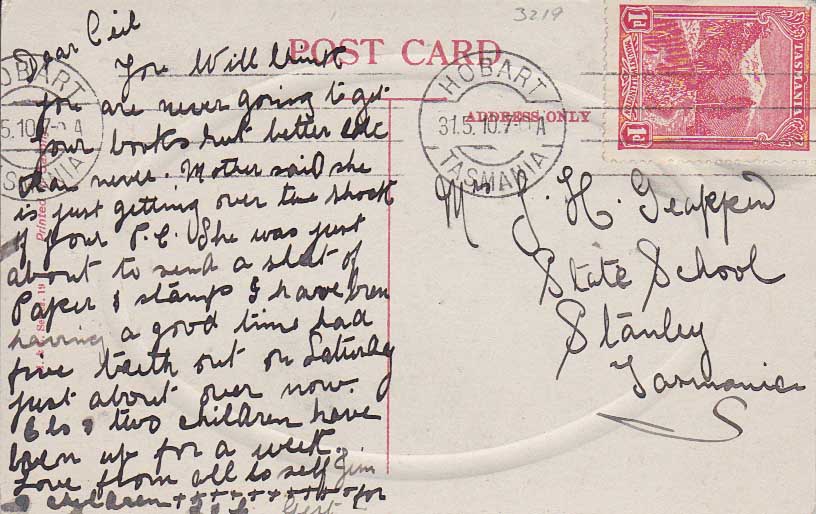 3219
POST CARD
ADDRESS ONLY
HOBART
31.5.10.7
TASMANIA
1D
TASMANIA
1D
HOBART
5.10.7
A
Dear Ceil
You Will think
you are never going to get
your books but better late
than never. Mother said she
is just getting over the shock
of your P.C. She was just
about to send a sheet of
Paper & stamps I have been
having a good time had
five teeth out on Saturday
just about over now.
& two children have
been up for a week.
Love from all to self Jim
& children + + + + + + + + + + for
Mrs J. H.
State School
Stanley
Tasmania
Printed